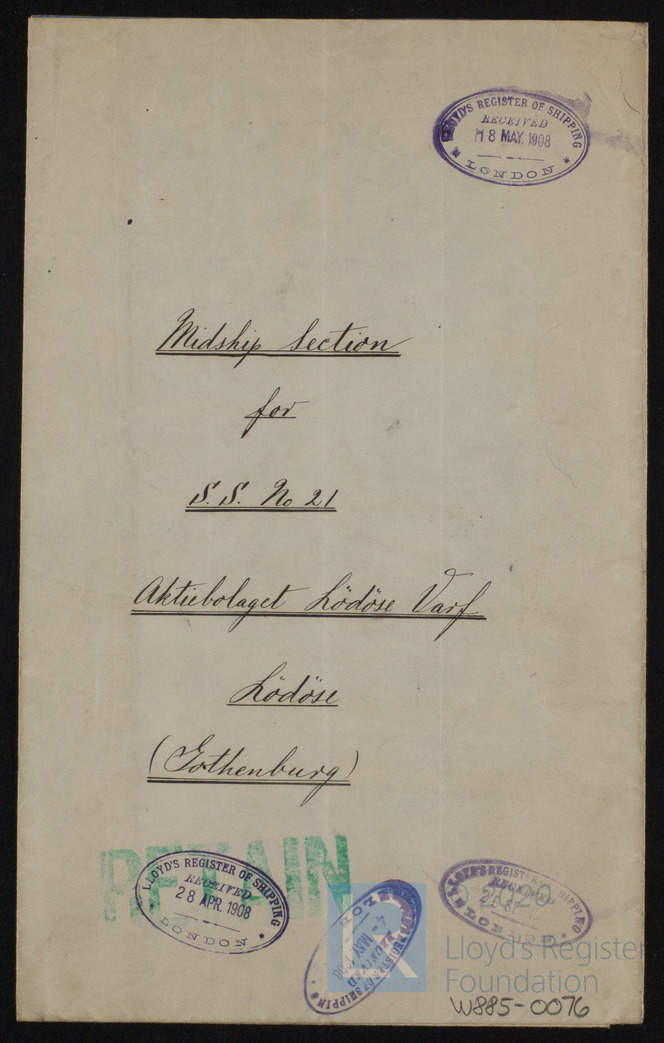 LLOYD'S REGISTER OF SHIPPING
RECEIVED
8 MAY. 1908
LONDON
Midship Section
for
S.S. No 21
Aktiebolaget Lödöse Varf
Lödöse
(Gothenburg)
RETAIN
LLOYD'S REGISTER OF SHIPPING
RECEIVED
28 APR. 1908
LONDON
REGISTER OF SHIPPING
RECEIVED
4 - MAY 1908
LONDON
Lloyd's Register
Foundation
W885-0076